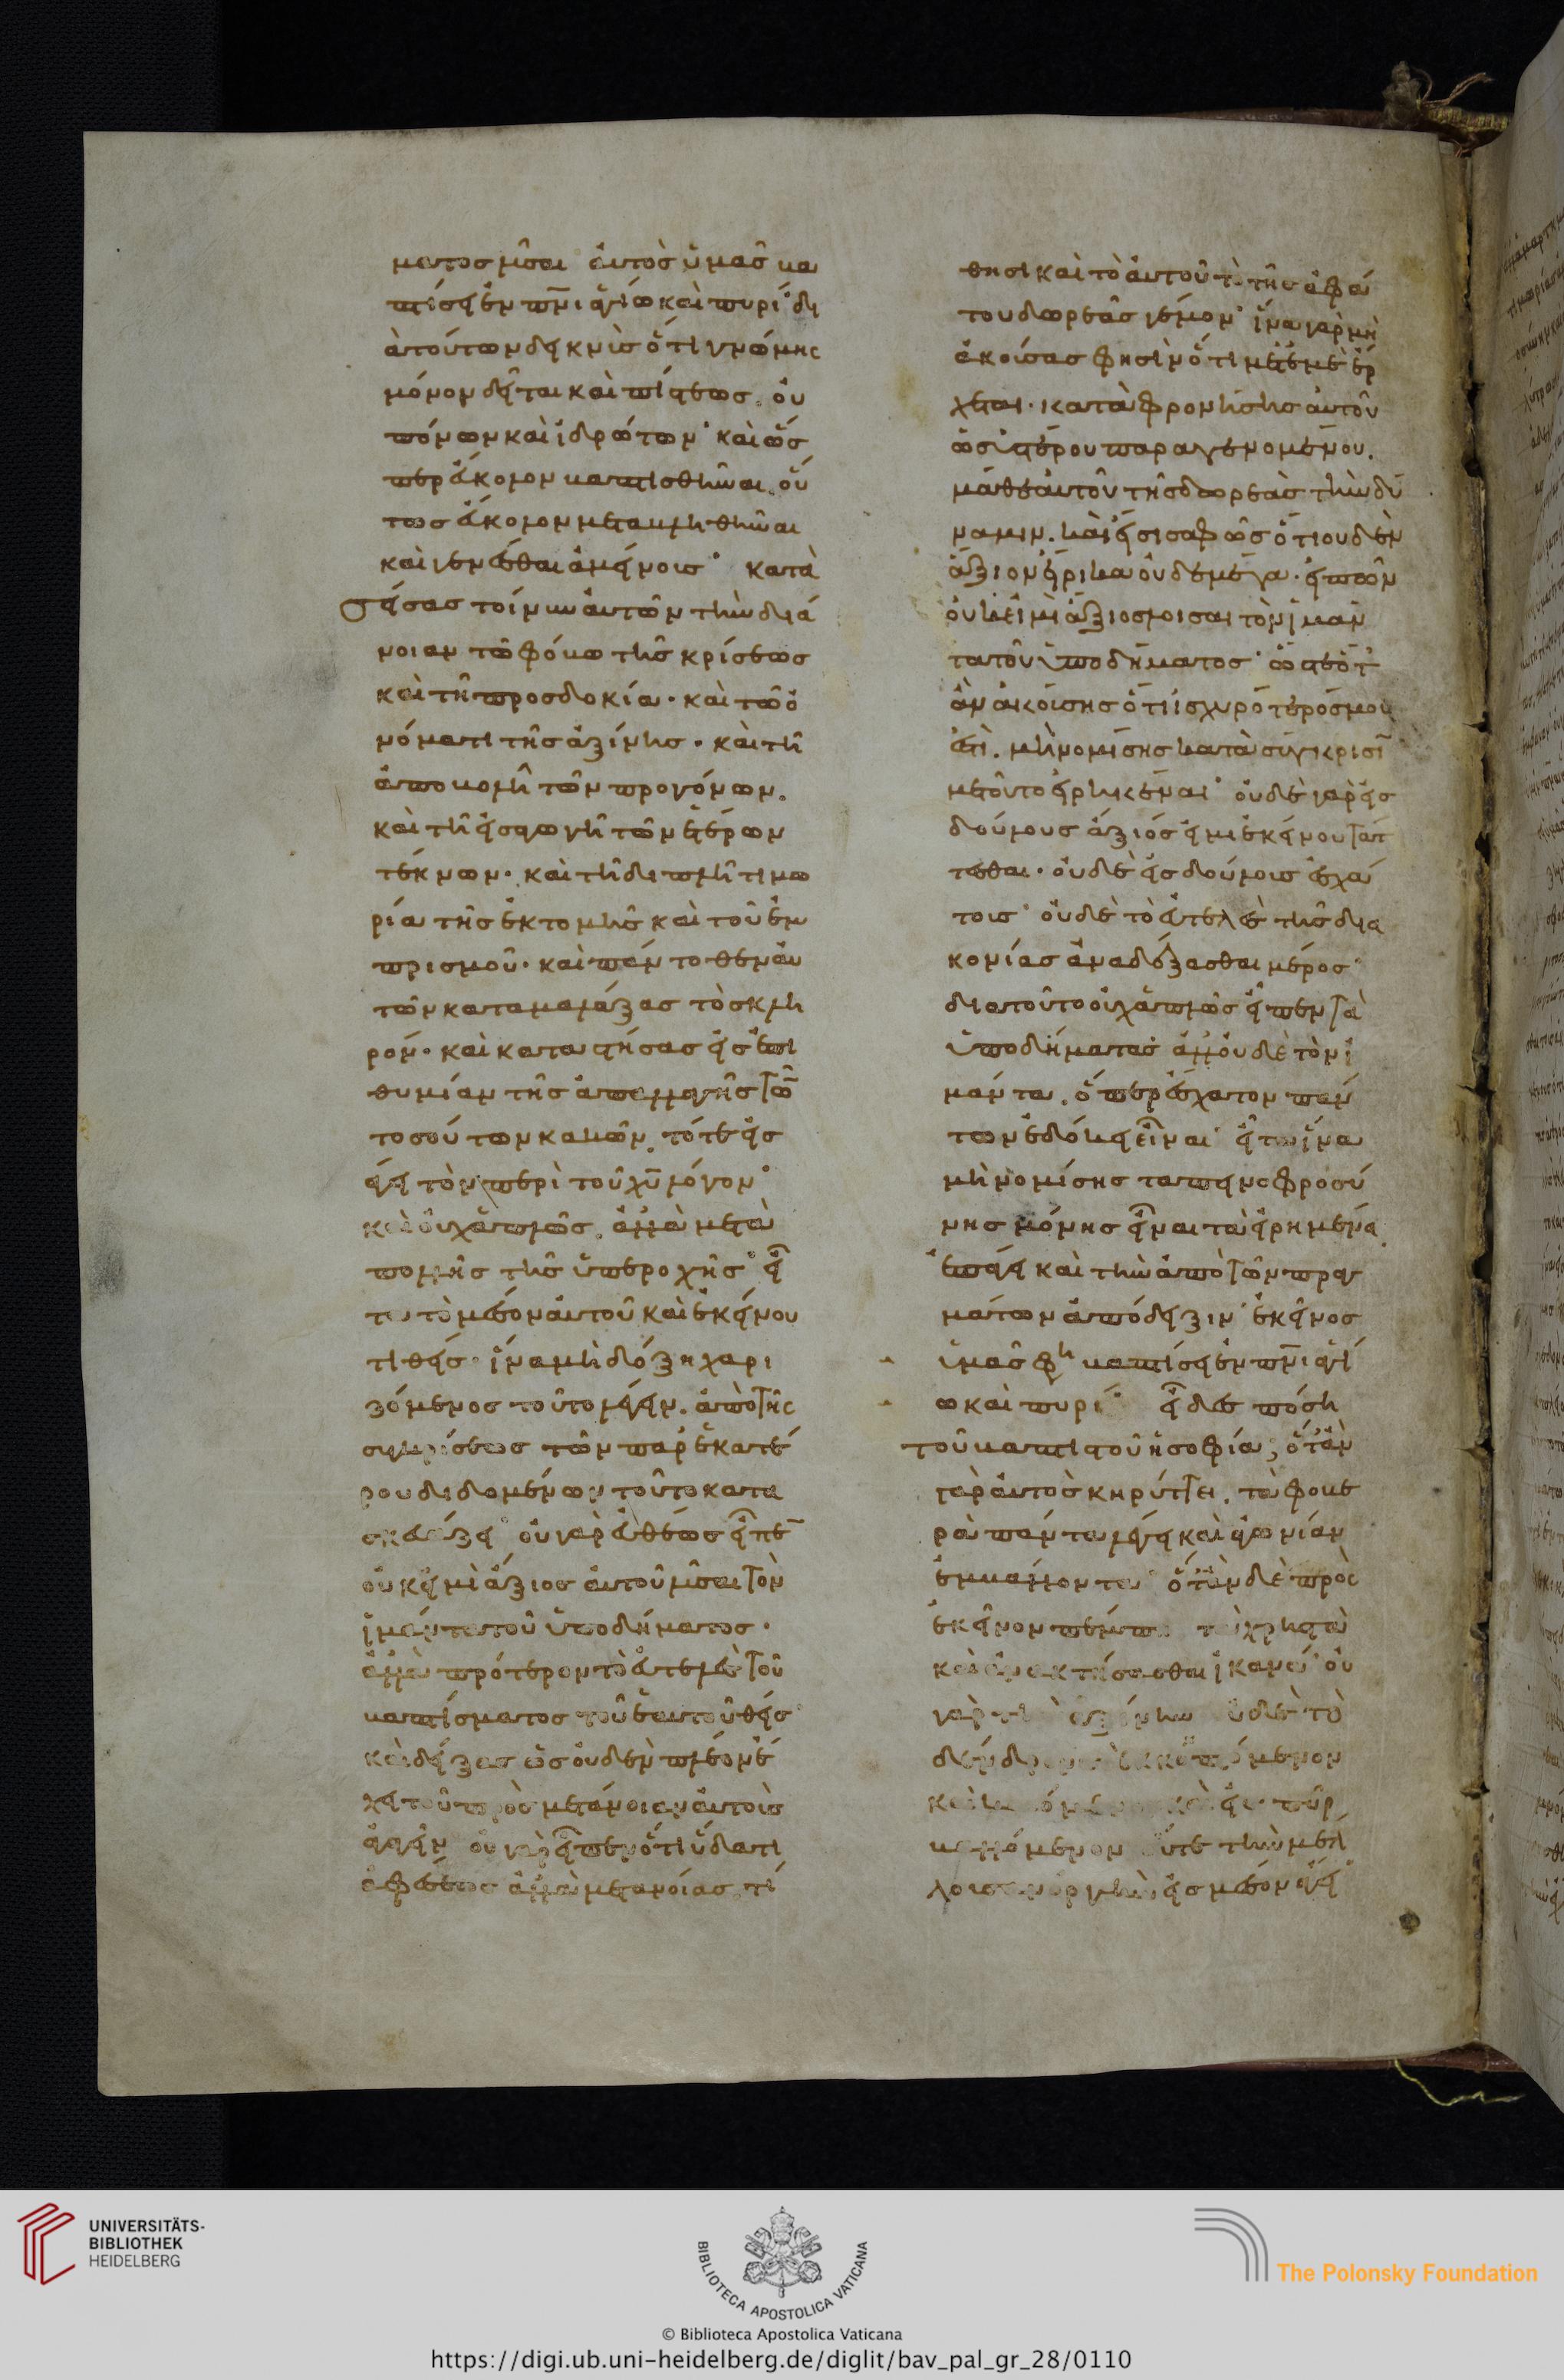 ματος λῦσαι αὐτὸς ὑμᾶς βα
πτίσει ἐν πνι ἁγίω καὶ πυρί· δι
ὰ τούτων δεικνὺς ὅτι γνώμης
μόνον δεῖται καὶ πίστεως. οὐ
πόνων καὶ ἱδρώτων· καὶ ὥσ
περ εὔκολον βαπτισθῆναι. οὕ
τως εὔκολον μεταβληθῆναι
καὶ γενέσθαι ἀμείνους· κατα
σείσας τοίνυν αὐτῶν τὴν διά
νοιαν τῶ φόβω τῆς κρίσεως
καὶ τῆ προσδοκία· καὶ τῶ ὀ
νόματι τῆς ἀξίνης· καὶ τῆ
ἀποβολῆ τῶν προγόνων.
καὶ τῆ εἰσαγωγῆ τῶν ἑτέρων
τέκνων· καὶ τῆ διπλῆ τιμω
ρία τῆς ἐκτομῆς καὶ τοῦ ἐμ
πρισμοῦ· καὶ πάντοθεν αὐ
τῶν καταμαλάξας τὸ σκλη
ρόν· καὶ καταστήσας εἰς ἐπι
θυμίαν τῆς ἀπαλλαγῆς τῶν
τοσούτων κακῶν. τότε εἰσ
άγει τὸν περὶ τοῦ χυ λόγον·
καὶ οὐχ ἁπλῶς. ἀλλὰ μετὰ
πολλῆς τῆς ὑπεροχῆς· εἶ
τα τὸ μέσον αὐτοῦ καὶ ἐκείνου
τιθείς· ἵνα μὴ δόξη χαρι
ζόμενος τοῦτο λέγειν. ἀπὸ τῆς
συγκρίσεως τῶν παρ' ἑκατέ
ρου διδομένων τοῦτο κατα
σκευάζει· οὐ γὰρ εὐθέως εἶπεν
οὐκ εἰμὶ ἄξιος αὐτοῦ λῦσαι τὸν
ἱμάντα τοῦ ὑποδήματος·
ἀλλὰ πρότερον τὸ εὐτελὲς τοῦ
βαπτίσματος τοῦ ἑαυτοῦ θείς·
καὶ δείξας ὡς οὐδὲν πλέον ἔ
χει τοῦ πρὸς μετάνοιαν αὐτοὺς
ἀγαγεῖν οὐ γὰρ εἶπεν ὅτι ὕδατι
ἀφέσεως ἀλλὰ μετανοίας. τί
θησι καὶ τὸ αὐτοῦ τὸ τῆς ἀφά
του δωρεᾶς γέμον· ἵνα γὰρ μὴ
ἀκούσας φησὶν ὅτι μετ' ἐμὲ ἔρ
χεται· καταφρονήσης αὐτοῦ
ὡς ὑστέρου παραγενομένου.
μάθε αὐτοῦ τῆς δωρεᾶς τὴν δύ
ναμιν. καὶ εἴσει σαφῶς ὅτι οὐδὲν
ἄξιον εἴρηκα οὐδὲ μέγα· εἰπὼν
οὐκ εἰμὶ ἄξιος λῦσαι τὸν ἱμάν
τα τοῦ ὑποδήματος· ὥστε ὅτ
ἂν ἀκούσης ὅτι ἰσχυρότερός μου
ἐστί. μὴ νομίσης κατὰ σύγκρισιν
με τοῦτο εἰρηκέναι· οὐδὲ γὰρ εἰς
δούλους ἄξιός εἰμι ἐκείνου τάτ
τεσθαι· οὐδὲ εἰς δούλους ἐσχά
τους· οὐδὲ τὸ εὐτελὲς τῆς δια
κονίας ἀναδέξασθαι μέρος·
διατοῦτο οὐχ ἁπλῶς εἶπεν τὰ
ὑποδήματα· ἀλλ' οὐδὲ τὸν ἱ
μάντα. ὅπερ ἔσχατον πάν
των ἐδόκει εἶναι· εἶτα ἵνα
μὴ νομίσης ταπεινοφροσύ
νης μόνης εἶναι τὰ εἰρημένα.
ἐπάγει καὶ τὴν ἀπὸ τῶν πραγ
μάτων ἀπόδειξιν· ἐκεῖνος
ὑμᾶς φη βαπτίσει ἐν πνι ἁγί
ω καὶ πυρί· εἶδες πόση
τοῦ βαπτιστοῦ ἡ σοφία; ὅταν
γὰρ αὐτὸς κηρύττει. τὰ φοβε
ρὰ πάντα λέγει καὶ ἀγωνίαν
ἐμβάλλοντα· ὅταν δὲ πρὸς
ἐκεῖνον πέμπη τὰ χρηστὰ
καὶ ἀνακτήσασθαι ἱκανά· οὐ
γὰρ τὴν ἀξίνην οὐδὲ τὸ
δένδρον τὸ ἐκκοπτόμενον
καὶ καιόμενον καὶ εἰς πῦρ
βαλλόμενον οὔτε τὴν μέλ
λουσαν ὀργὴν εἰς μέσον ἄγει
UNIVERSITÄTS-
BIBLIOTHEK
HEIDELBERG
BIBLIOTECA APOSTOLICA VATICANA
The Polonsky Foundation
© Biblioteca Apostolica Vaticana
https://digi.ub.uni-heidelberg.de/diglit/bav_pal_gr_28/0110